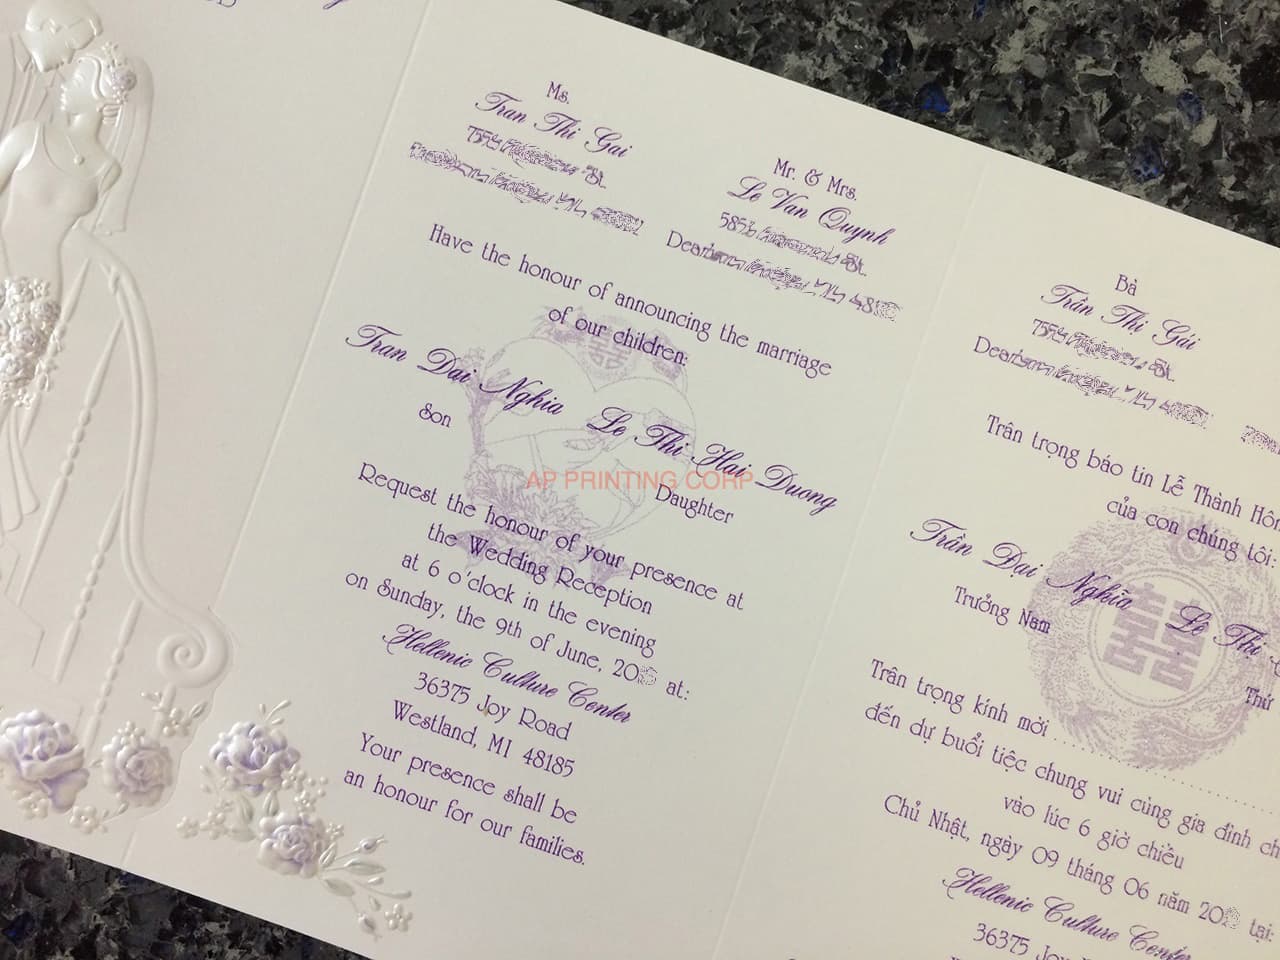 Ms.
Tran Thi Gai
St.
Mr. & Mrs.
Le Van Quynh
St.
Dearborn
Have the honour of announcing the marriage
of our children:
Tran Dai Nghia Le Thi Hai Duong
Son Daughter
AP PRINTING CORP
Request the honour of your presence at
the Wedding Reception
at 6 o'clock in the evening
on Sunday, the 9th of June, 20 at:
Hellenic Culture Center
36375 Joy Road
Westland, MI 48185
Your presence shall be
an honour for our families.
Bà
Trần Thị Gái
St.
Dearborn
Trân trọng báo tin Lễ Thành Hôn
của con chúng tôi:
Trần Đại Nghĩa Lê Thị
Trưởng Nam Thứ
囍
Trân trọng kính mời
đến dự buổi tiệc chung vui cùng gia đình
vào lúc 6 giờ chiều
Chủ Nhật, ngày 09 tháng 06 năm 20 tại:
Hellenic Culture Center
36375 Joy